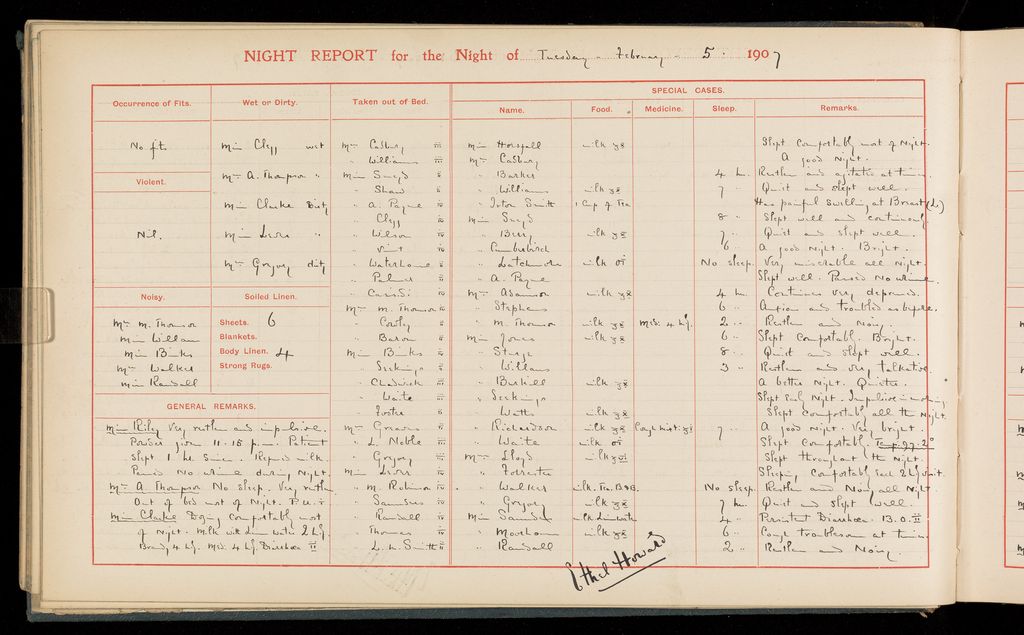 NIGHT REPORT for the Night of Tuesday - February - 5 . 1907
Occurrence of Fits.
No fits
Violent.
Nil.
Noisy.
Mrs M. Thomson
Miss Willans
Miss Binks
Mrs Walker
Miss Randall
Wet or Dirty.
Miss Clegg wet
Mrs A. Thompson "
Miss Clarke Dirty
Miss "
Mrs Gregory dirty
Soiled Linen.
Sheets. 6
Blankets.
Body Linen. 4
Strong Rugs.
GENERAL REMARKS.
Miss Riley Very restless and impulsive.
given 11-15 p.m. Patient
Slept 1 hr. Since. milk.
Passed No urine during Night.
Mrs A. Thompson No Sleep. Very restless
Out of bed most of Night. P.U. I
Miss Clarke Dozing comfortably most
of Night. Milk with Lime water 2 hrly.
Brandy 4 hrly. Med. 4 hrly. Diarrhoea II
Taken out of Bed.
Mrs Cadbury III
" Williams
Miss
" Shaw II
" A. Payne
" Clegg
" Wilson
" Vint
" Waterhouse II
" Palmer
"
Mrs M. Thomson
"
" Baron II
Miss Binks
"
" Chadwick
" Waite
" Foster II
Mrs Greaves
" L. Noble III
" Gregory
Miss
" M. Robinson
"
" Randall
" Thomas
" L. M. Smith II
SPECIAL CASES.
Name. Food. Medicine. Sleep. Remarks.
Miss Horsfall milk Slept comfortably most of Night.
Mrs Cadbury A good Night.
" Barker 4 hrs. Restless and agitated at times.
" Williams milk 7 " Quiet and slept well.
" Smith 1 Cup of Tea Has painful swelling at Breast (Lt)
Miss 8 " Slept well and
" Berry milk 7 " Quiet and slept well.
" Cumberbirch 6 " A good Night. Bright.
" milk No sleep. Very miserable all night.
" A. Payne Slept well. Passed No urine.
Mrs Adamson milk 4 hrs. Continues very depressed.
" Stephens 6 " Anxious and troubled as before.
" M. Thomson milk Med. 4 hrly. 2 " Restless and Noisy.
Miss Jones milk 6 " Slept Comfortably. Bright.
" Sturge 8 " Quiet and slept well.
" Willans 3 " Restless and very talkative.
" milk A better Night. Quieter.
" Slept early Night. Impulsive in morning.
" Watts milk Slept comfortably all the night.
" Richardson milk Cough mist. 7 " A good Night. Very bright.
" Waite milk Slept Comfortably. Temp. 99.2°
Mrs Lloyd milk Slept throughout the Night.
" Forrester Sleeping Comfortably each 2 hrly visit.
" Walker milk. Tea. B&B. No sleep. Restless and Noisy all Night.
" Gregory milk 7 hrs. Quiet and Slept well.
Miss milk Limewater 4 " Persistent Diarrhoea. B.O. II
" Moorhouse milk 6 " Cough troublesome at times.
" Randall 2 " Restless and Noisy.
Ethel Howard